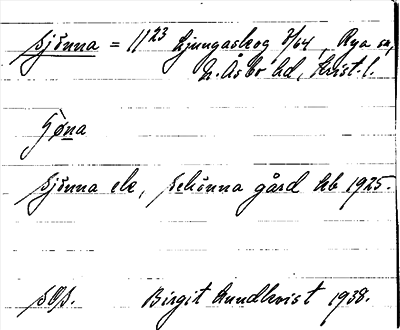 Sjönna = 11²³ Ljungaskog 7/64, Rya sn,
N. Åsbo hd, Krist. l.
Sjönna ek, Schönna gård kb 1925.
SOS. Birgit Lundkvist 1938.